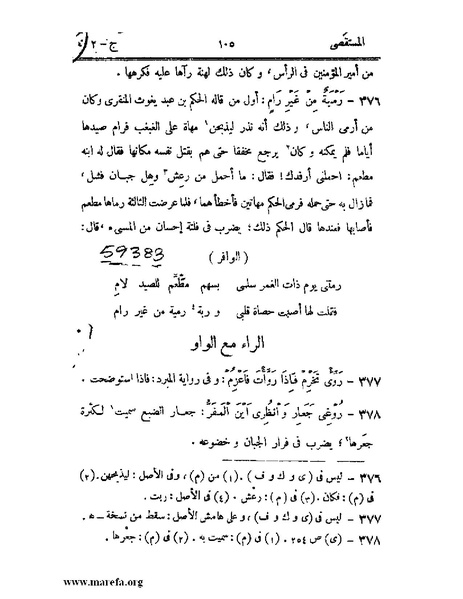 المستقصى ١٠٥ ج - ٢
من أمير المؤمنين فى الرأس، و كان ذلك لهنة رآها عليه فكرهها .
٣٧٦ - رَمْيَةٌ مِنْ غَيْرِ رَامٍ: أول من قاله الحكم بن عبد يغوث المنقرى وكان
من أرمى الناس، و ذلك أنه نذر ليذبحن¹ مهاة على الغبغب فرام صيدها
أياما فلم يمكنه و كان² يرجع مخفقا حتى هم بقتل نفسه مكانها فقال له ابنه
مطعم: احملنى أرفدك! فقال: ما أحمل من رعش³ وهل جبان فشل،
فمازال به حتى حمله فرمى الحكم مهاتين فأخطأهما، فلما عرضت الثالثة رماها مطعم
فأصابها فعندها قال الحكم ذلك؛ يضرب فى فلتة إحسان من المسىء، قال:
(الوافر)
59383
رمتنى يوم ذات الغمر سلمى بسهم مُطْعَمٍ للصيد لامِ
فقلت لها أصبت حصاة قلبى و ربة⁴ رمية من غير رام
الراء مع الواو
٣٧٧ - رَوِّىْ تَحْزِمْ فَإِذَا رَوَّأْتَ فَاعْزِمْ: و فى رواية المبرد: فاذا استوضحت .
٣٧٨ - رُوْغِىْ جَعَارِ وَانْظُرِى أَيْنَ الْمَفَرُّ: جعار الضبع سميت¹ لكثرة
جعرها²؛ يضرب فى فرار الجبان و خضوعه .
٣٧٦ - ليس فى (ى و ك و ف) . (١) من (م)، وفى الأصل: ليذبحهن. (٢)
فى (م): فكان. (٣) فى (م): رعْش . (٤) فى الأصل: ربت .
٣٧٧ - ليس فى (ى و ك و ف)، و على هامش الأصل: سقط من نسخة - ه .
٣٧٨ - (ى) ص ٢٥٤ . (١) فى (م): سميت به . (٢) فى (م): جعْرها .
www.marefa.org